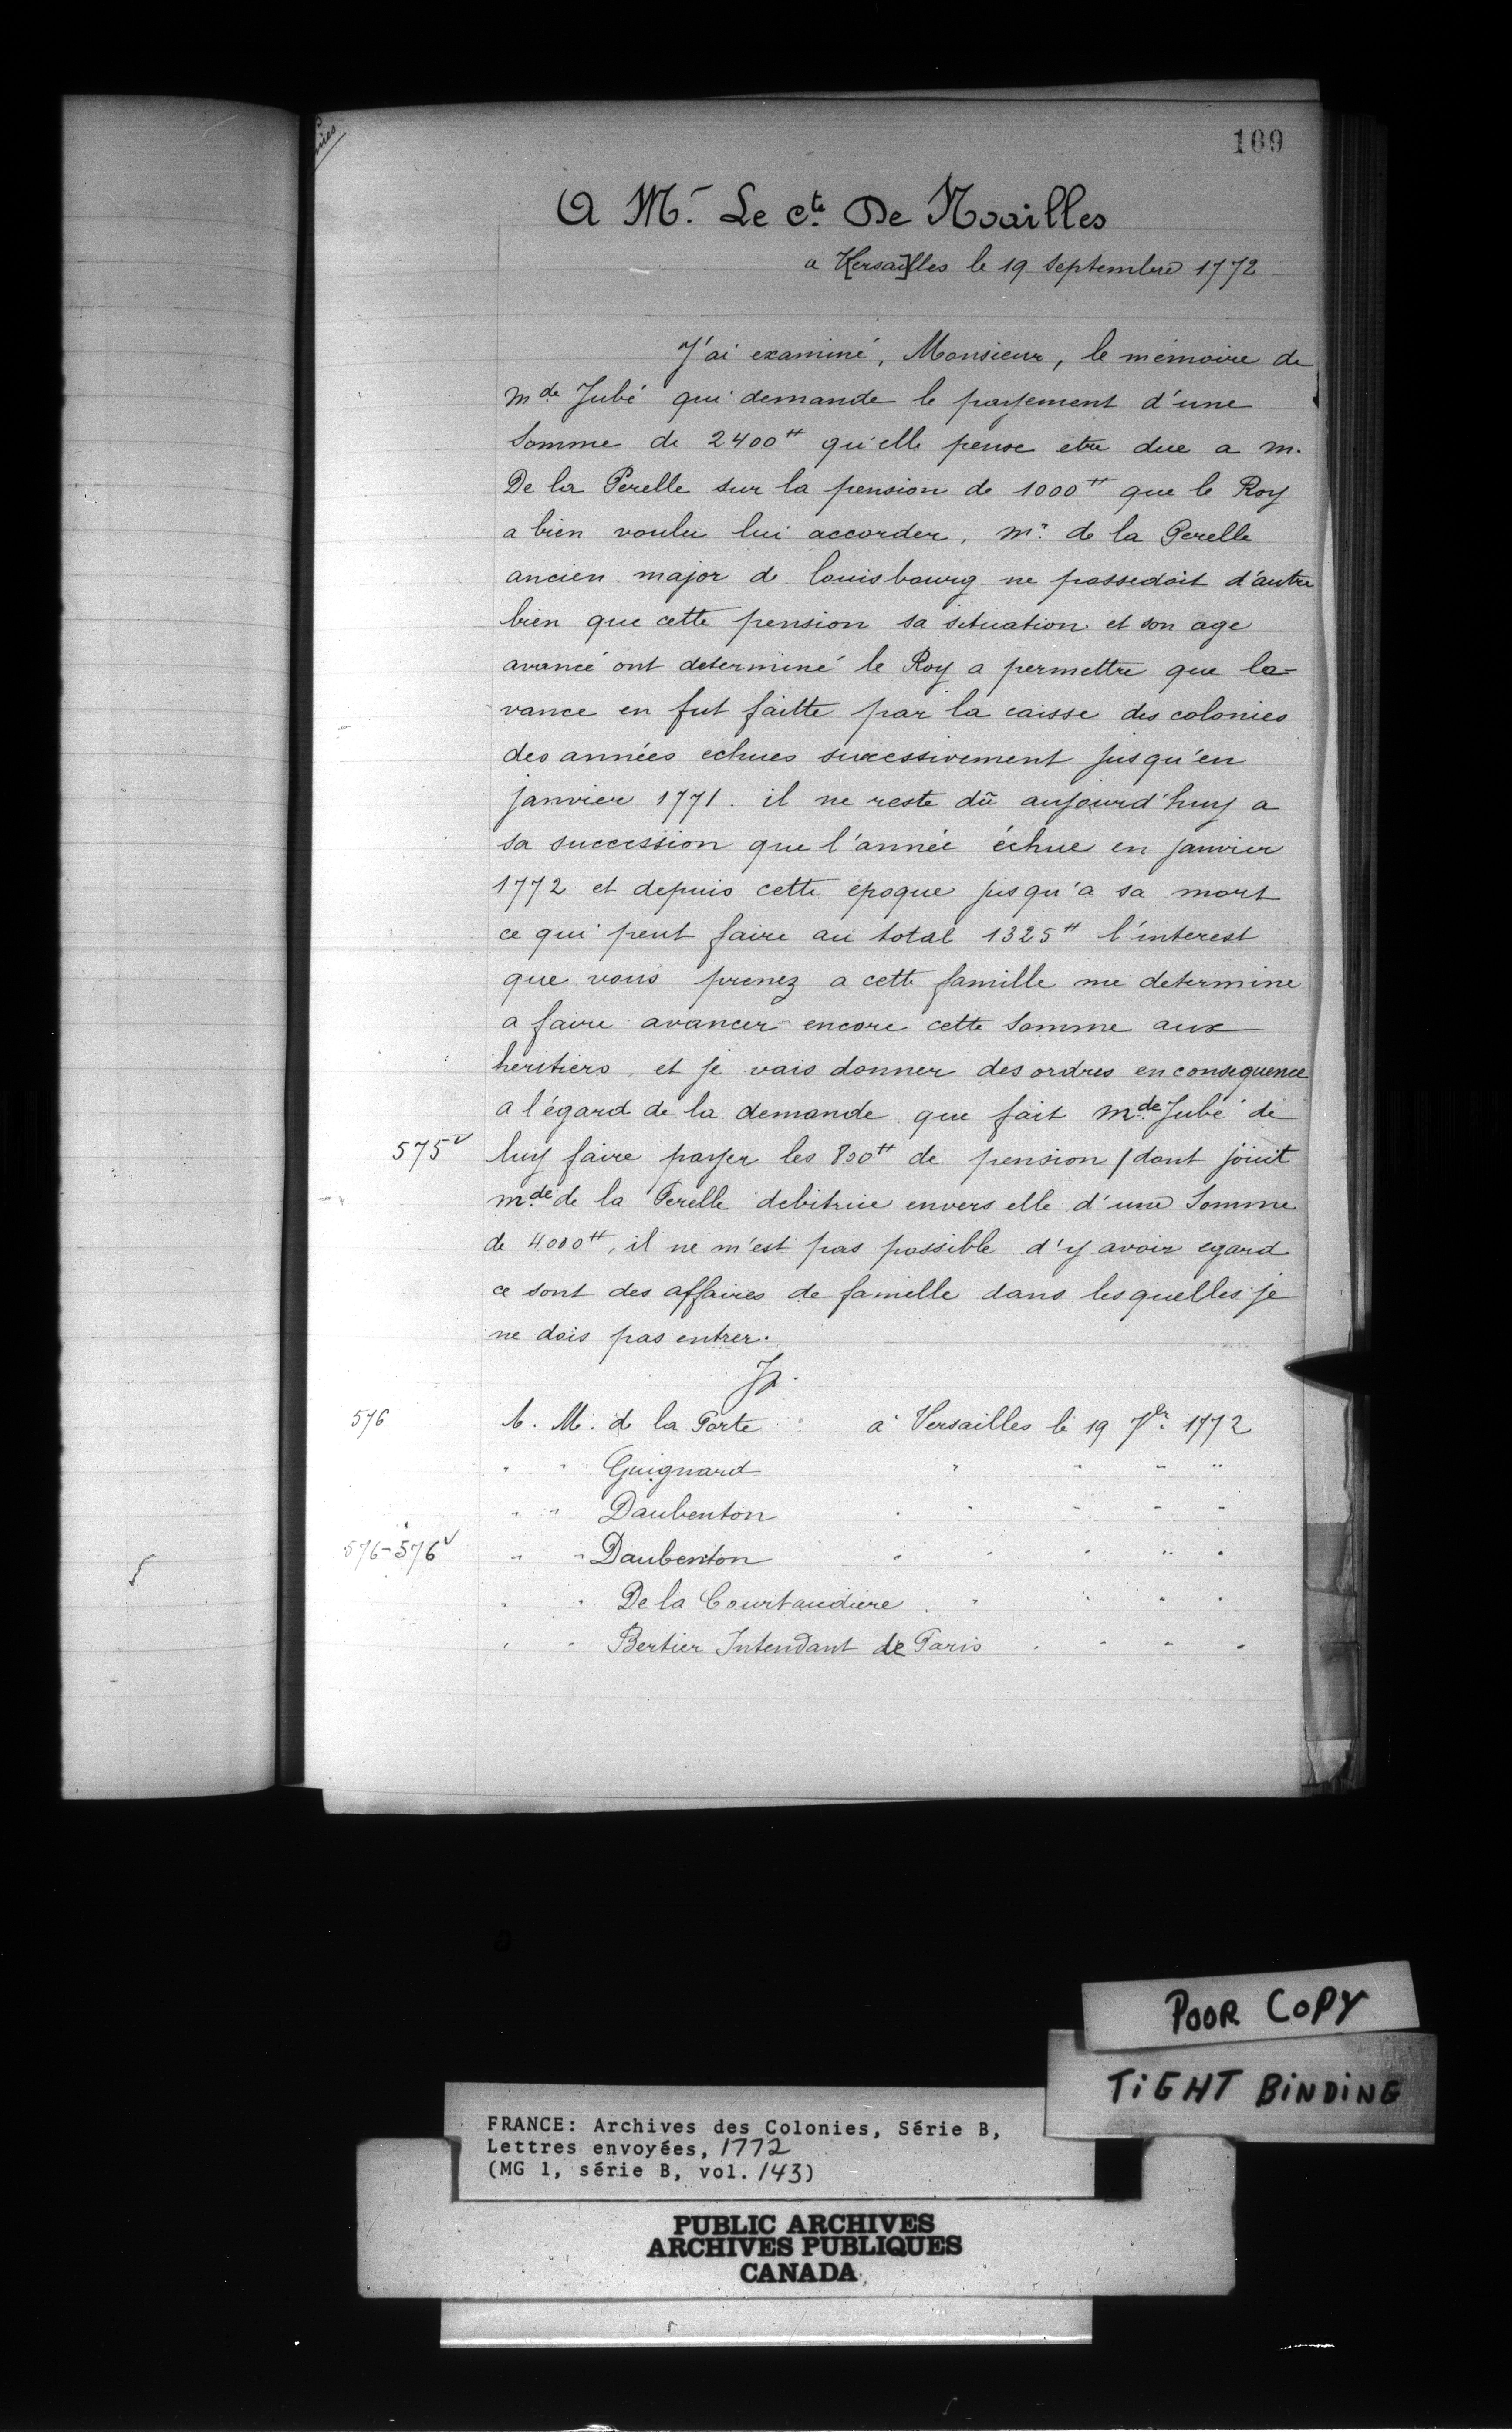 109
A Mr. Le cte. De Noailles
a V[ersai]lles le 19 Septembre 1772
J'ai examiné, Monsieur, le mémoire de
mde. Jubé qui demande le payement d'une
Somme de 2400tt qu'elle pense etre due a m.
De la Perelle sur la pension de 1000tt que le Roy
a bien voulu lui accorder, mr. de la Perelle
ancien major de louisbourg ne possedoit d'autre
bien que cette pension sa situation et son age
avancé ont determiné le Roy a permettre que la-
vance en fut faitte par la caisse des colonies
des années echues successivement jusqu'en
janvier 1771. il ne reste dû aujourd'huy a
sa succession que l'année échue en janvier
1772 et depuis cette epoque jusqu'a sa mort
ce qui peut faire au total 1325tt l'interest
que vous prenez a cette famille me determine
a faire avancer encore cette Somme aux
heritiers, et je vais donner des ordres en consequence
a l'égard de la demande que fait mde. Jubé de
575v luy faire payer les 800tt de pension / dont jouit
mde. de la Perelle debitrice envers elle d'une Somme
de 4000tt, il ne m'est pas possible d'y avoir egard
ce sont des affaires de famille dans lesquelles je
ne dois pas entrer.
576 A. M. de la Porte à Versailles le 19 7br. 1772
" " Guignard " " " "
" " Daubenton " " " " "
576-576v " " Daubenton " " " " "
" " De la Courtaudiere " " " "
" " Bertier Intendant de Paris " " " "
POOR COPY
TIGHT BINDING
FRANCE: Archives des Colonies, Série B,
Lettres envoyées, 1772
(MG 1, série B, vol. 143)
PUBLIC ARCHIVES
ARCHIVES PUBLIQUES
CANADA